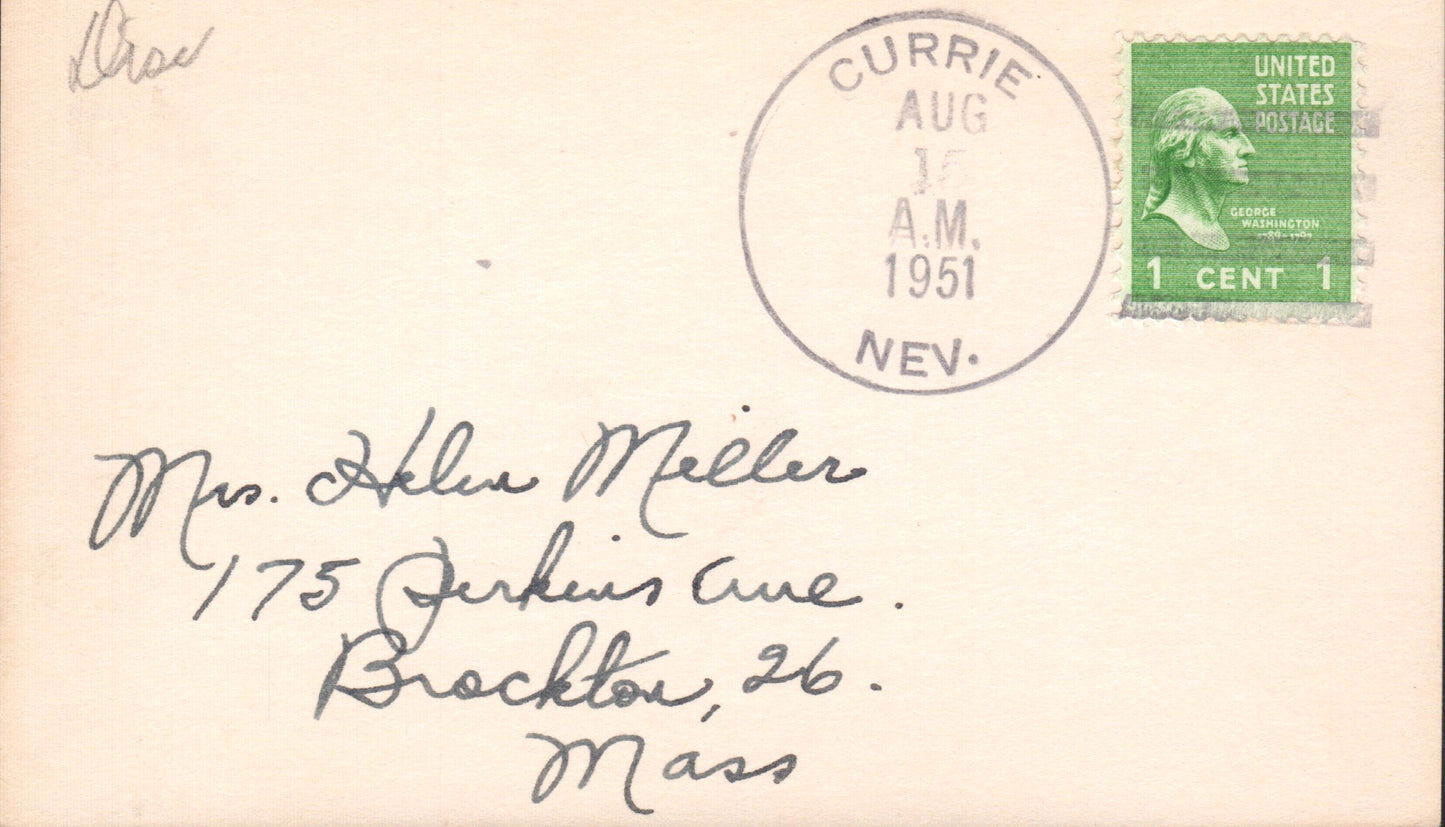 CURRIE
AUG
15
A.M.
1951
NEV.
UNITED
STATES
POSTAGE
GEORGE
WASHINGTON
1789-1797
1 CENT 1
Mrs. Helen Miller
175 Perkins Ave.
Brockton, 26.
Mass